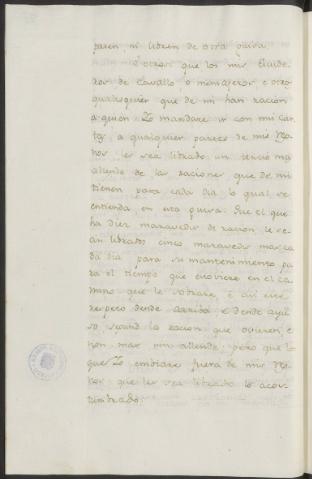 paren, ni libren de otra guisa.
E otrosi que los mis Escude-
ros de Cavallo o mensajeros e otros
qualesquier que de mi han racion
a quien Yo mandare ir con mis Car-
tas a qualquier partes de mis Re-
nos, les sea librado un tercio mas
allende de las raciones que de mi
tienen para cada dia lo qual se
entienda en esta guisa. Que el que
ha diez maravedis de racion, le se-
an librados cinco maravedis mas ca-
da dia para su mantenimiento pa-
ra el tiempo que estoviere en el ca-
mino que le
respeto dende arriba e dende ayu-
so segund la racion que ovieren, e
non mas nin allende; pero que lo
que Yo embiare fuera de mis Re-
nos que les sea librado lo acos-
tumbrado.